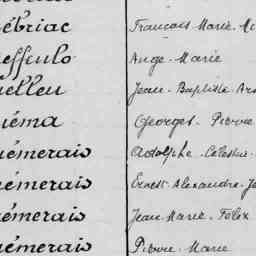 ébriac François Marie
effulo Ange Marie
elleu Jean Baptiste
éma Georges Pierre
émerais Adolphe Célestin
émerais Ernest Alexandre
émerais Jean Marie Félix
émerais Pierre Marie